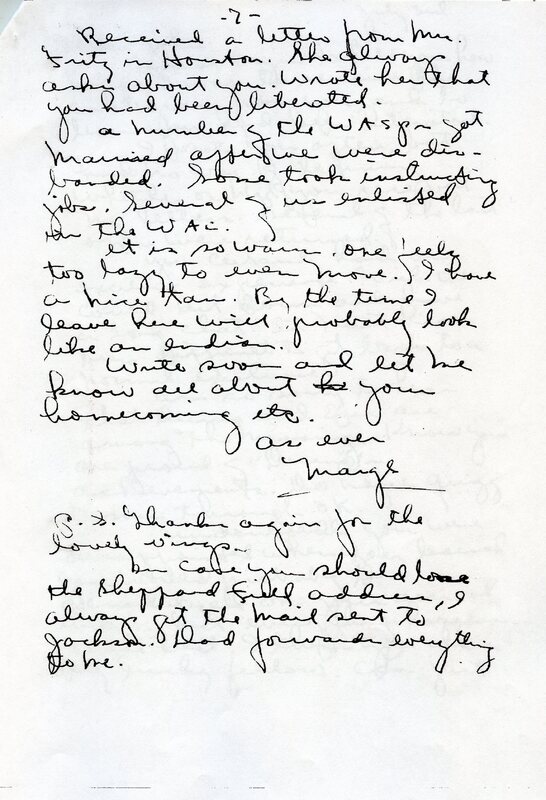 -7-
Received a letter from Mrs.
Fritz in Houston. She always
asks about you. Wrote her that
you had been liberated.
A number of the WASPs got
married after we were dis-
banded. Some took instructing
jobs. Several of us enlisted
in the WAC.
It is so warm, one feels
too lazy to even move. I have
a nice tan. By the time I
leave here will probably look
like an Indian.
Write soon and let me
know all about your
homecoming etc.
As ever
Marge
P.S. Thanks again for the
lovely wings.
In case you should lose
the Sheppard Field address, I
always get the mail sent to
Jackson. Dad forwards everything
to me.